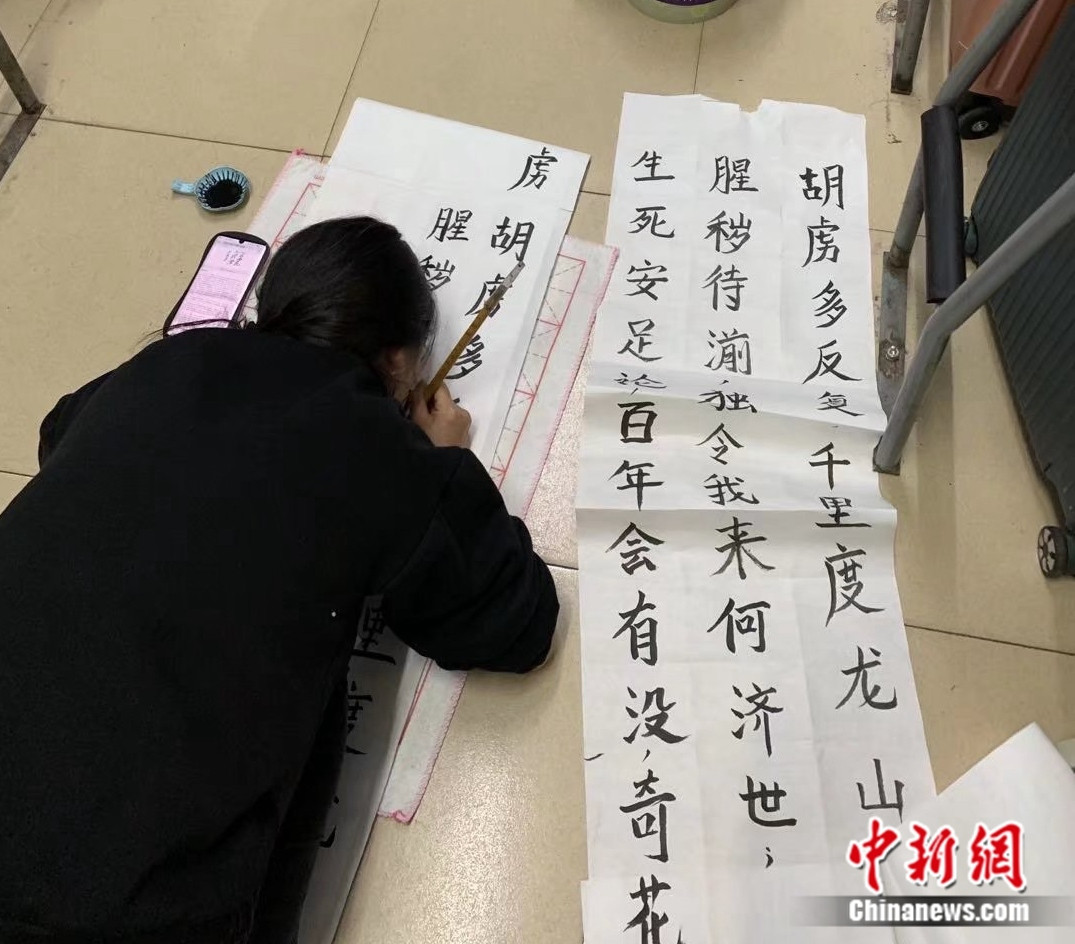 胡虏多反复，千里度龙山
腥秽待湔独令我来何济世；
生死安足论，百年会有没，奇花
虏
胡虏多
里度
腥秽
中新網
Chinanews.com